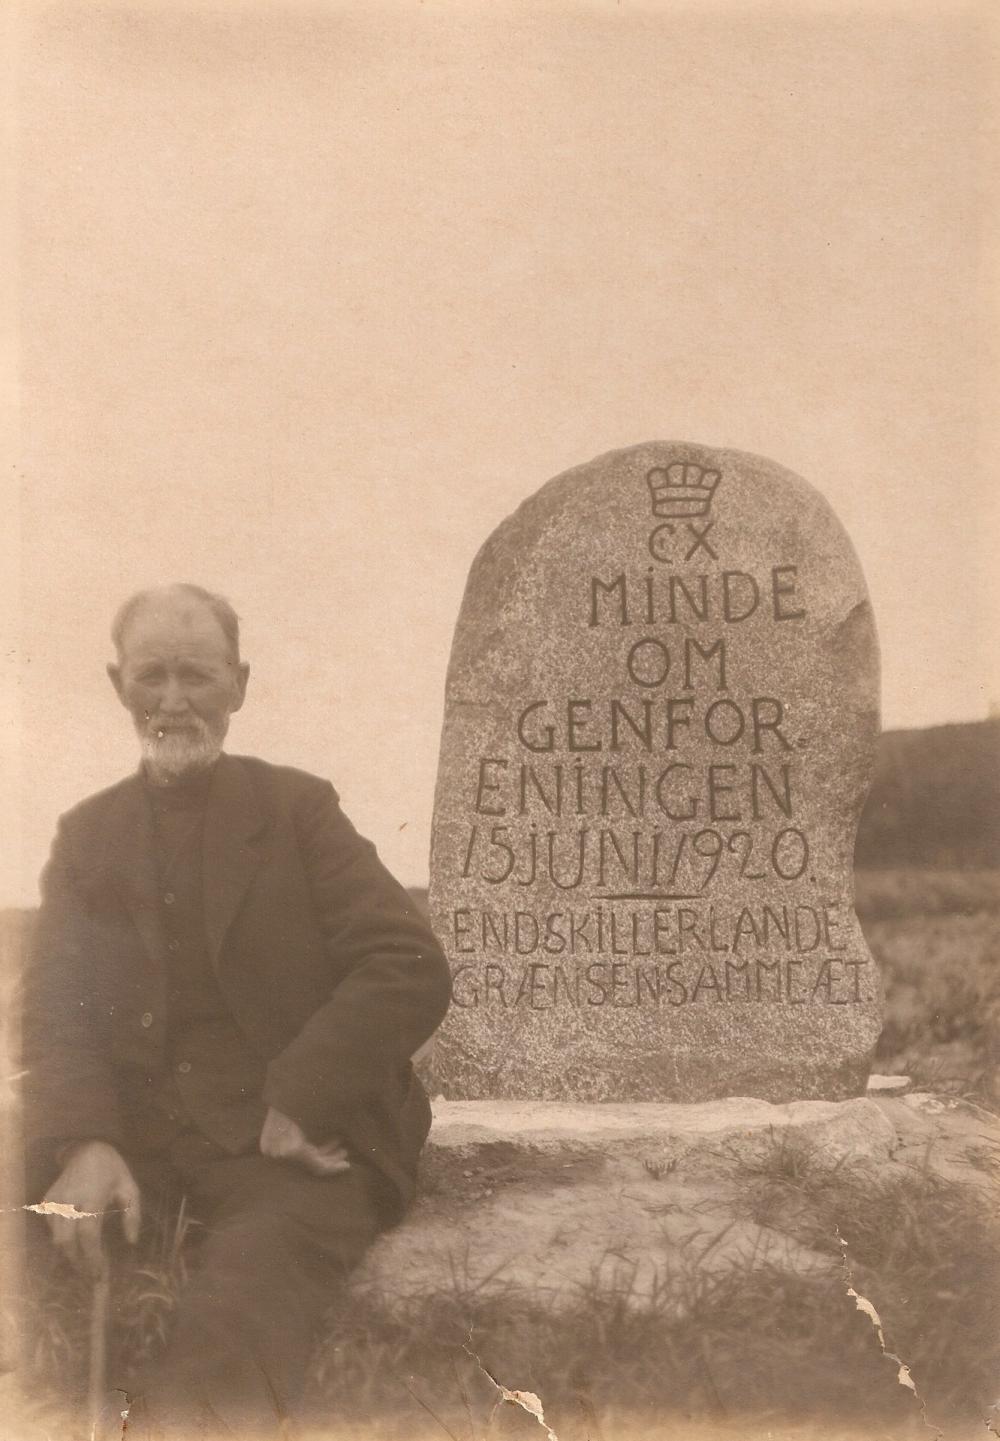 CX
MiNDE
OM
GENFOR=
ENiNGEN
15 jUNi 1920.
ENDSKiLLER LANDE
GRÆNSEN SAMME ÆT.